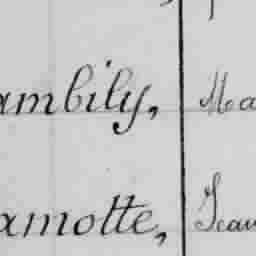 ambily, Ma
amotte, Jean